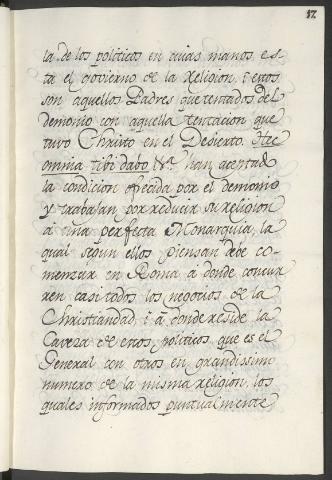 17
la de los politicos en cuias manos es-
ta el govierno de la Religion, i estos
son aquellos Padres que tentados del
demonio con aquella tentacion que
tuvo Christo en el Desierto. Hæc
omnia tibi dabo &ª han aceptado
la condicion ofrecida por el demonio
y trabajan por reducir su religion
à una perfecta Monarquia, la
qual segun ellos piensan debe co-
menzar en Roma a donde concur
ren casi todos los negocios de la
Christiandad, i à donde reside la
Caveza de estos, politicos, que es el
General con otros en grandissimo
numero de la misma religion, los
quales informados puntualmente